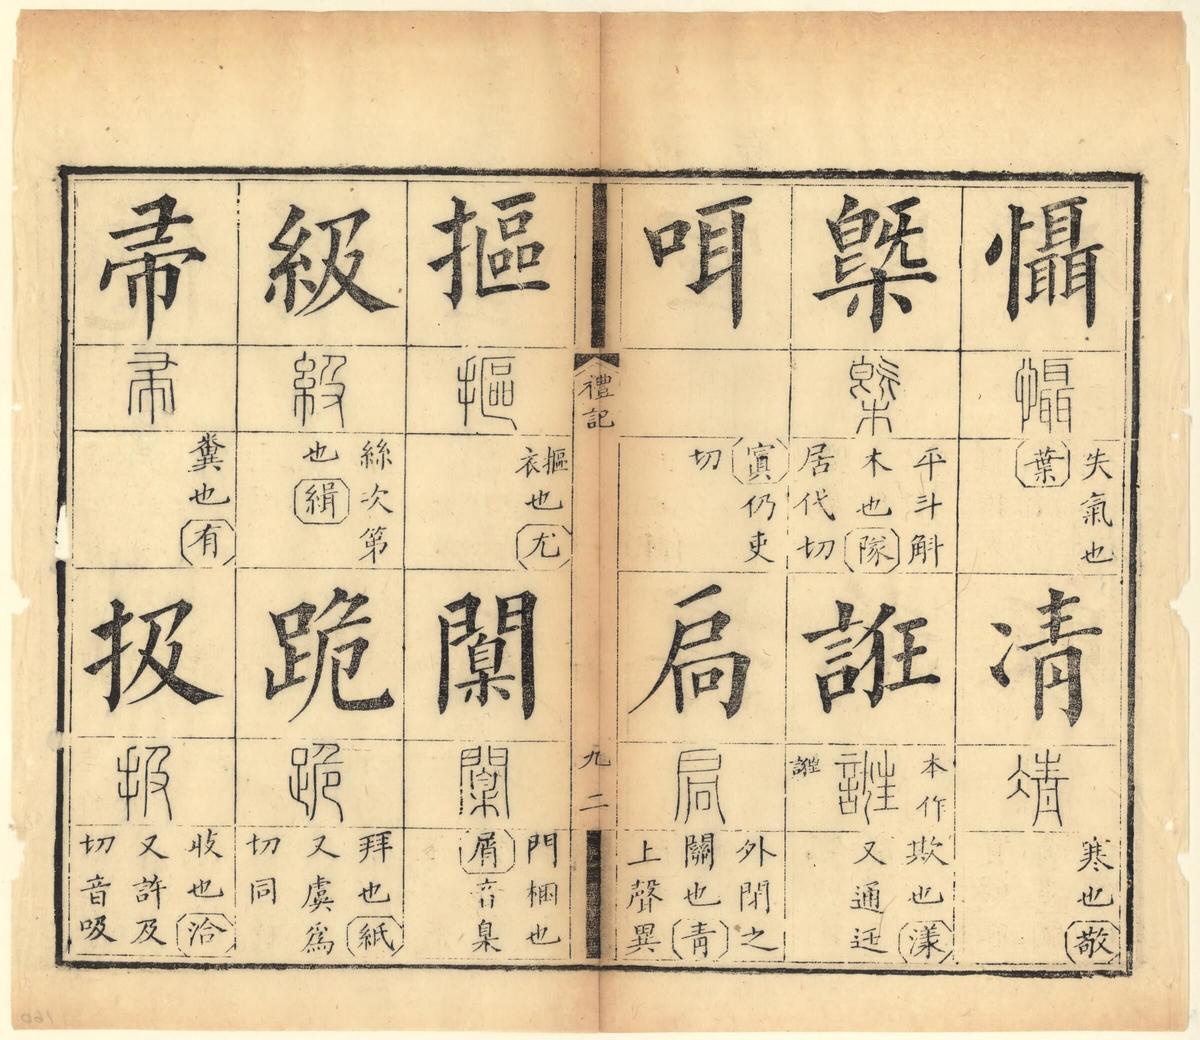 懾
懾
失氣也
葉
凊
凊
寒也敬
槩
槩
平斗斛
木也隊
居代切
誑
本作
誑
欺也漾
又通迋
咡
寘仍吏
切
扃
扃
外閉之
關也青
上聲異
禮記
九 二
摳
摳
摳衣也尤
闑
闑
門梱也
屑音臬
級
級
絲次第
也緝
跪
跪
拜也紙
又虞爲
切同
帚
帚
糞也有
扱
扱
收也洽
又許及
切音吸